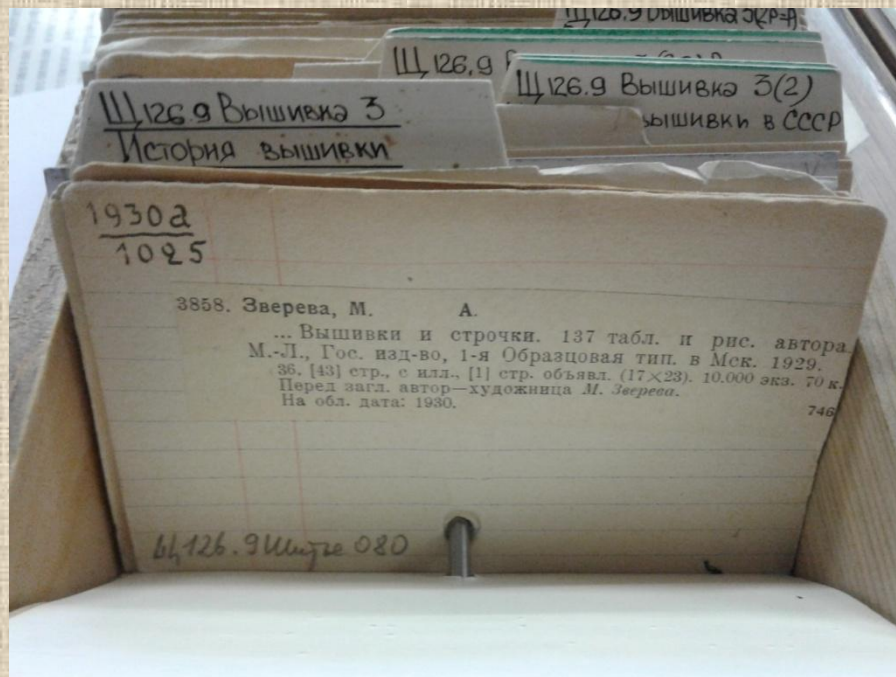 Щ126.9 Вышивка 3(2Р=А)
Щ126,9
Щ126.9 Вышивка 3(2)
вышивки в СССР
Щ126.9 Вышивка 3
История вышивки
1930а
1025
3858. Зверева, М. А.
... Вышивки и строчки. 137 табл. и рис. автора.
М.-Л., Гос. изд-во, 1-я Образцовая тип. в Мск. 1929.
36, [43] стр., с илл., [1] стр. объявл. (17×23). 10.000 экз. 70 к.
Перед загл. автор—художница М. Зверева.
На обл. дата: 1930.
746
Щ126.9 Шитье 080